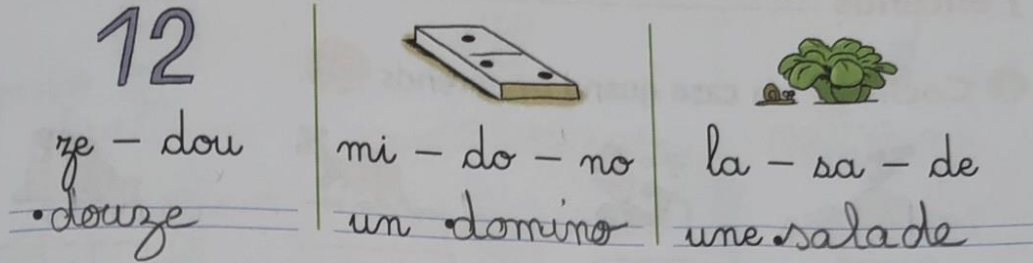 12
ze - dou
douze
mi - do - no
un domino
la - sa - de
une salade